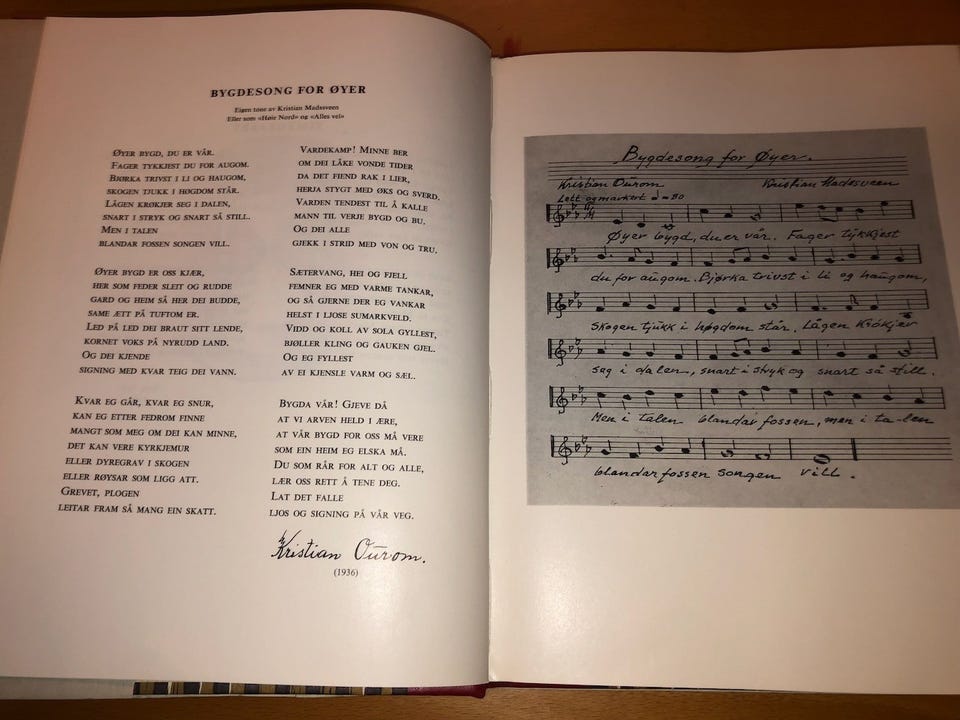 BYGDESONG FOR ØYER
Eigen tone av Kristian Madssveen
Eller som «Høir Nord» og «Alles vel»
ØYER BYGD, DU ER VÅR.
FAGER TYKKJEST DU FOR AUGOM.
BJØRKA TRIVST I LI OG HAUGOM,
SKOGEN TJUKK I HØGDOM STÅR.
LÅGEN KRØKJER SEG I DALEN,
SNART I STRYK OG SNART SÅ STILL.
MEN I TALEN
BLANDAR FOSSEN SONGEN VILL.
ØYER BYGD ER OSS KJÆR,
HER SOM FEDER SLEIT OG RUDDE
GARD OG HEIM SÅ HER DEI BUDDE,
SAME ÆTT PÅ TUFTOM ER.
LED PÅ LED DEI BRAUT SITT LENDE,
KORNET VOKS PÅ NYRUDD LAND.
OG DEI KJENDE
SIGNING MED KVAR TEIG DEI VANN.
KVAR EG GÅR, KVAR EG SNUR,
KAN EG ETTER FEDROM FINNE
MANGT SOM MEG OM DEI KAN MINNE,
DET KAN VERE KYRKJEMUR
ELLER DYREGRAV I SKOGEN
ELLER RØYSAR SOM LIGG ATT.
GREVET, PLOGEN
LEITAR FRAM SÅ MANG EIN SKATT.
VARDEKAMP! MINNE BER
OM DEI LÅKE VONDE TIDER
DA DET FIEND RAK I LIER,
HERJA STYGT MED ØKS OG SVERD.
VARDEN TENDEST TIL Å KALLE
MANN TIL VERJE BYGD OG BU.
OG DEI ALLE
GJEKK I STRID MED VON OG TRU.
SÆTERVANG, HEI OG FJELL
FEMNER EG MED VARME TANKAR,
OG SÅ GJERNE DER EG VANKAR
HELST I LJOSE SUMARKVELD.
VIDD OG KOLL AV SOLA GYLLEST,
BJØLLER KLING OG GAUKEN GJEL.
OG EG FYLLEST
AV EI KJENSLE VARM OG SÆL.
BYGDA VÅR! GJEVE DÅ
AT VI ARVEN HELD I ÆRE,
AT VÅR BYGD FOR OSS MÅ VERE
SOM EIN HEIM EG ELSKA MÅ.
DU SOM RÅR FOR ALT OG ALLE,
LÆR OSS RETT Å TENE DEG.
LAT DET FALLE
LJOS OG SIGNING PÅ VÅR VEG.
Kristian Ourom.
(1936)
Bygdesong for Øyer.
Kristian Ourom Kristian Madesveen
Lett og markert ♩=80
Øyer bygd, du er vår. Fager tykkjest
du for augom. Bjørka trivst i li og haugom,
Skogen tjukk i høgdom står. Lågen krökjer
seg i dalen, snart i stryk og snart så still.
Men i talen blandar fossen, men i ta-len
blandar fossen songen vill.